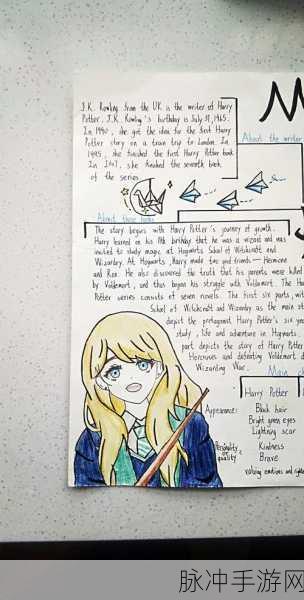 J.K. Rowling from the UK is the writer of Harry
Potter. J.K. Rowling's birthday is July 31, 1965.
In 1990, she got the idea for the first Harry
Potter story on a train trip to London. In
1995, she finished the first Harry Potter book
In 2007, she finished the seventh book
of the series
M
About the writer
About these books
The story begins with Harry Potter's journey of growth.
Harry learned on his 11th birthday that he was a wizard and was
invited to study magic at Hogwarts School of Witchcraft and
Wizardry. At Hogwarts, Harry made two good friends — Hermione
and Ron. He also discovered the truth that his parents were killed
by Voldemort, and thus began his struggle with Voldemort. The Ha
Potter series consists of seven novels. The first six parts, wit
School of Witchcraft and Wizardry as the main st
depict the protagonist Harry Potter's six yea
study, life and adventure in Hogwarts.
part depicts the story of Harry Potter
Horcruxes and defeating Voldemort
Wizarding War.
Main
Harry Potter
Appearance:
Black hair
Bright green eyes
Lightning scar
Personality
quality:
Kindness
Brave
valuing emotions and righte
脉冲手游网